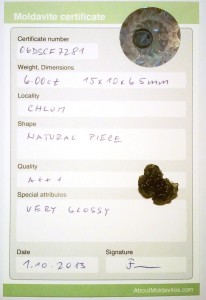 Moldavite certificate
Certificate number
06DSCF7281
Weight, Dimensions
6.00ct 15x10x6.5mm
Locality
CHLUM
Shape
NATURAL PIECE
Quality
A++1
Special attributes
VERY GLOSSY
Date
Signature
1.10.2013
AboutMoldavites.com